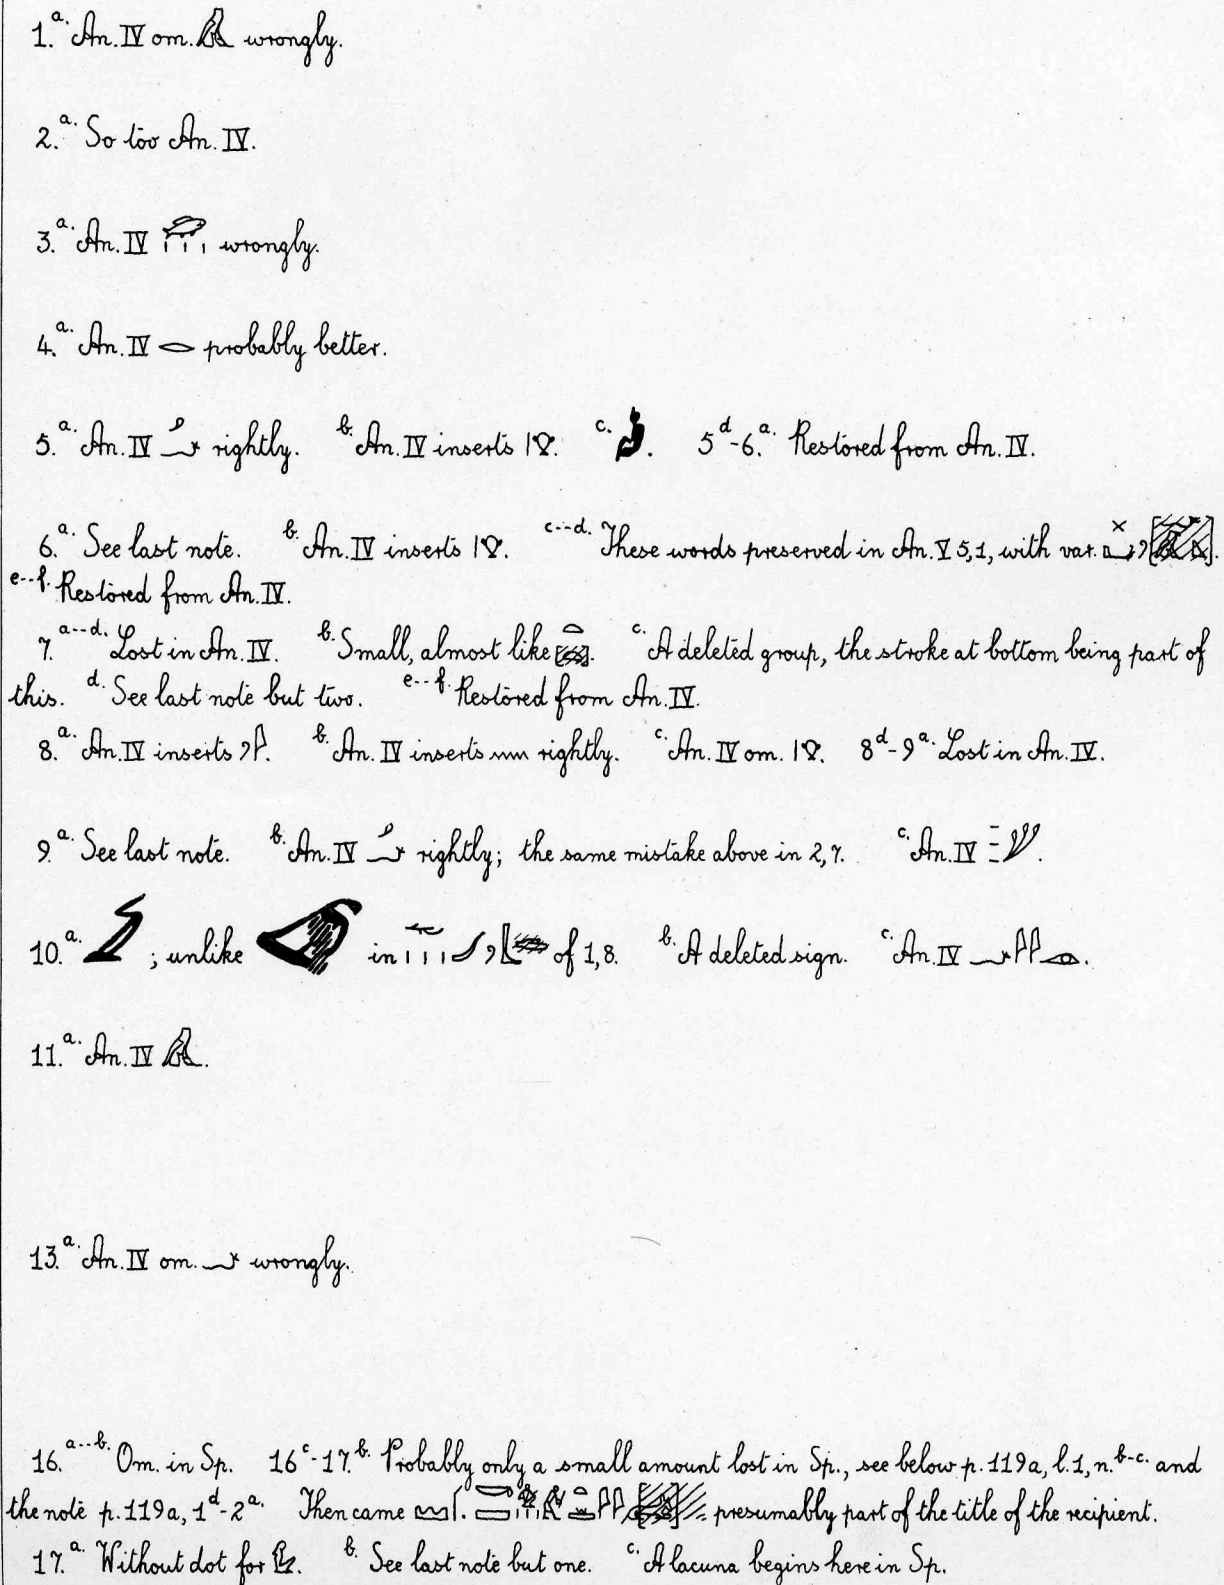 1.a. An. IV om. wrongly.
2.a. So too An. IV.
3.a. An. IV wrongly.
4.a. An. IV 𓂋 probably better.
5.a. An. IV rightly. b. An. IV inserts c. . 5d-6.a. Restored from An. IV.
6.a. See last note. b. An. IV inserts c--d. These words preserved in An. V 5,1, with var.
e--f. Restored from An. IV.
7.a--d. Lost in An. IV. b. Small, almost like c. A deleted group, the stroke at bottom being part of
this. d. See last note but two. e--f. Restored from An. IV.
8.a. An. IV inserts b. An. IV inserts 𓈖 rightly. c. An. IV om. 8d-9a. Lost in An. IV.
9.a. See last note. b. An. IV rightly; the same mistake above in 2,7. c. An. IV
10.a. ; unlike in of 1,8. b. A deleted sign. c. An. IV
11.a. An. IV
13.a. An. IV om. wrongly.
16.a--b. Om. in Sp. 16c-17.b. Probably only a small amount lost in Sp., see below p. 119a, l. 1, n. b-c. and
the note p. 119a, 1d-2a. Then came presumably part of the title of the recipient.
17.a. Without dot for b. See last note but one. c. A lacuna begins here in Sp.